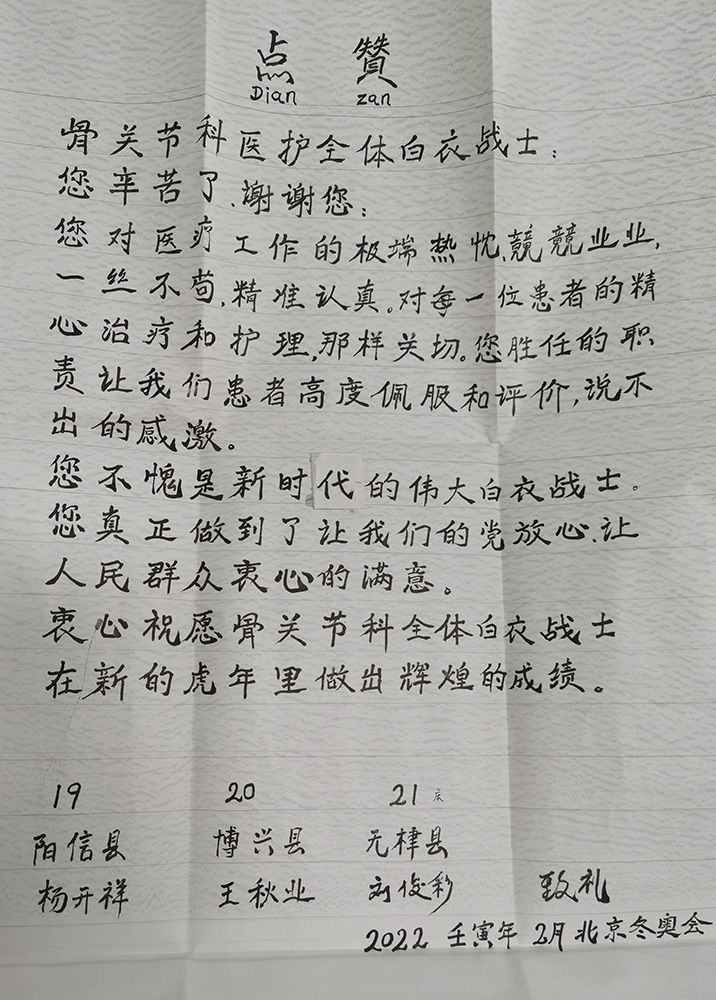 点 赞
Dian zan
骨关节科医护全体白衣战士：
您辛苦了、谢谢您：
您对医疗工作的极端热忱，兢兢业业，
一丝不苟，精准认真。对每一位患者的精
心治疗和护理，那样关切。您胜任的职
责让我们患者高度佩服和评价，说不
出的感激。
您不愧是新时代的伟大白衣战士。
您真正做到了让我们的党放心、让
人民群众衷心的满意。
衷心祝愿骨关节科全体白衣战士
在新的虎年里做出辉煌的成绩。
19 20 21床
阳信县 博兴县 无棣县
杨开祥 王秋业 刘俊彩 致礼
2022 壬寅年 2月北京冬奥会